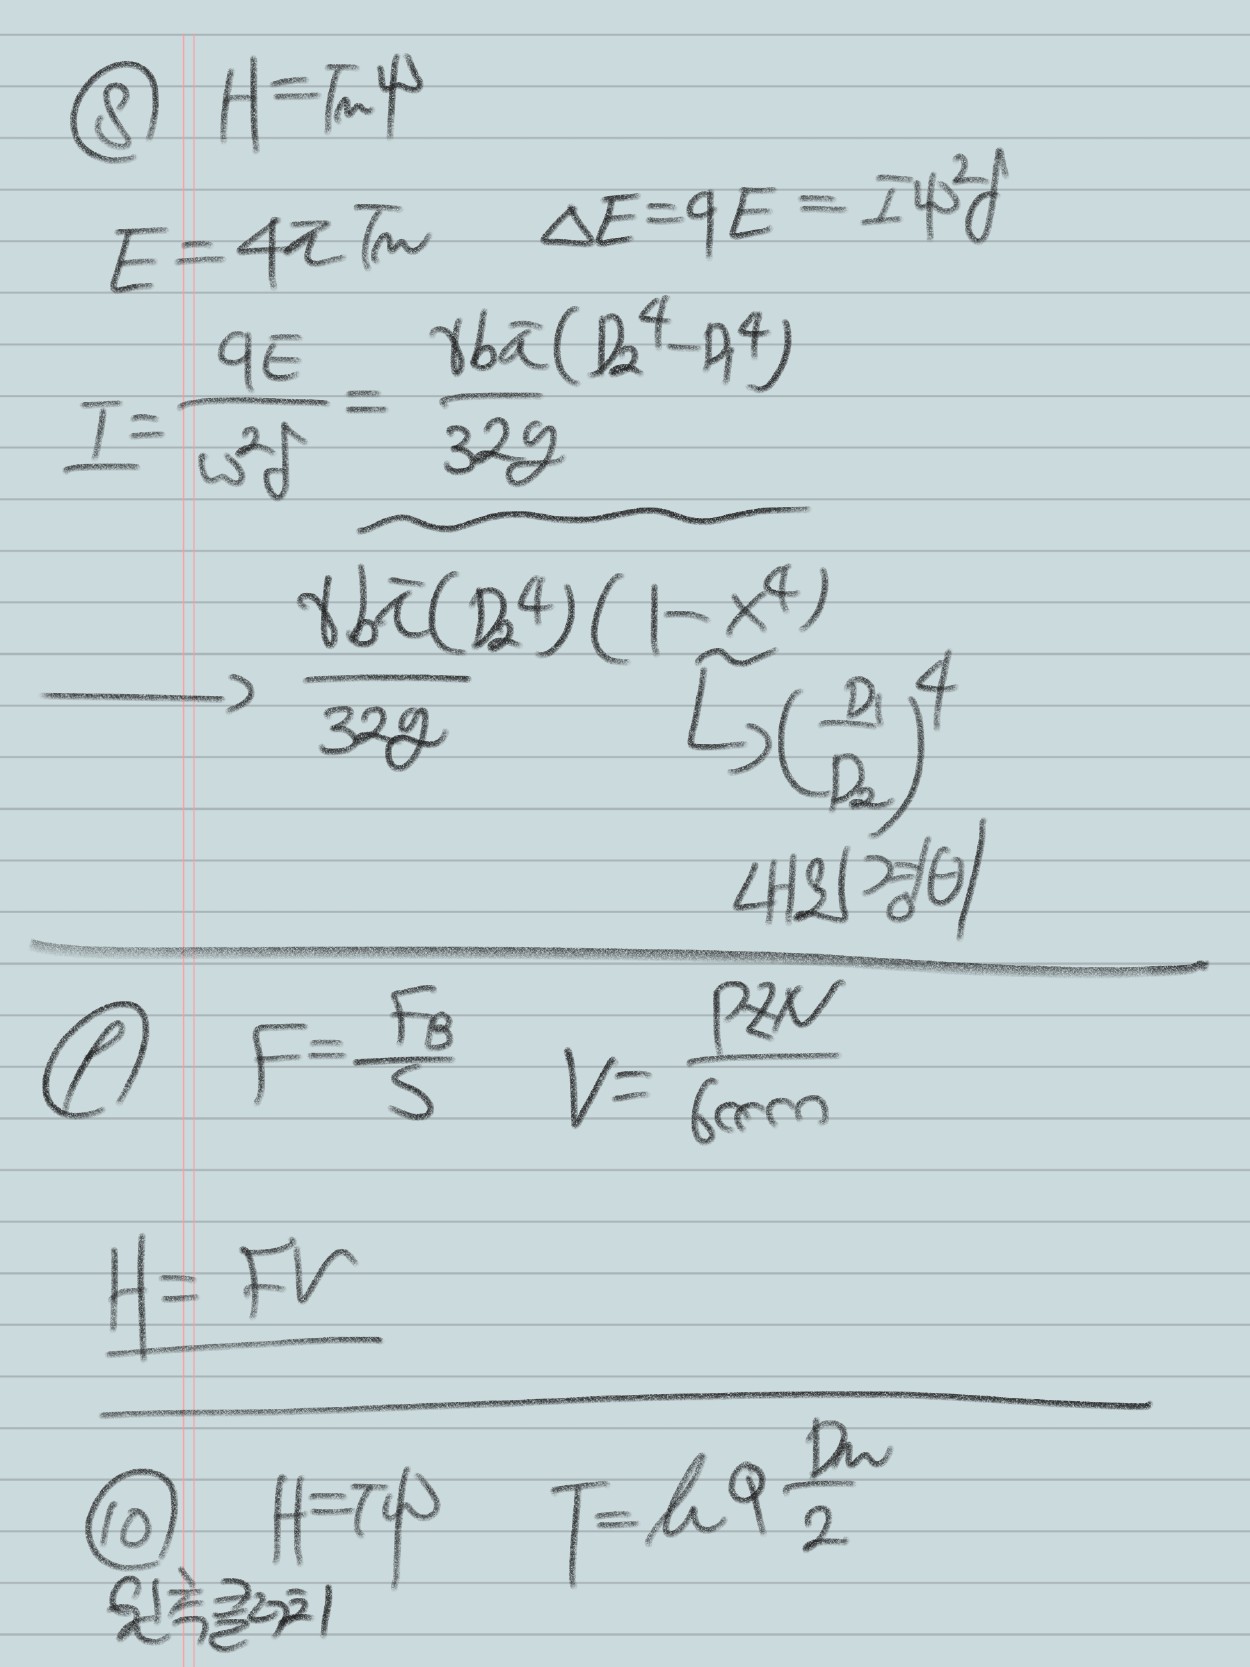 ⑧ H=Tmψ
E=4πTm ΔE=qE=Iψ²δ
I= qE/ω²δ = γbπ(D₂⁴-D₁⁴)/32g
→ γbπ(D₂⁴)(1-x⁴)/32g
↳(D₁/D₂)⁴
내외경비
⑨ F=F_B/S V=PZN/60000
H=FV
⑩ H=Tψ T=μQ Dm/2
원추클러치